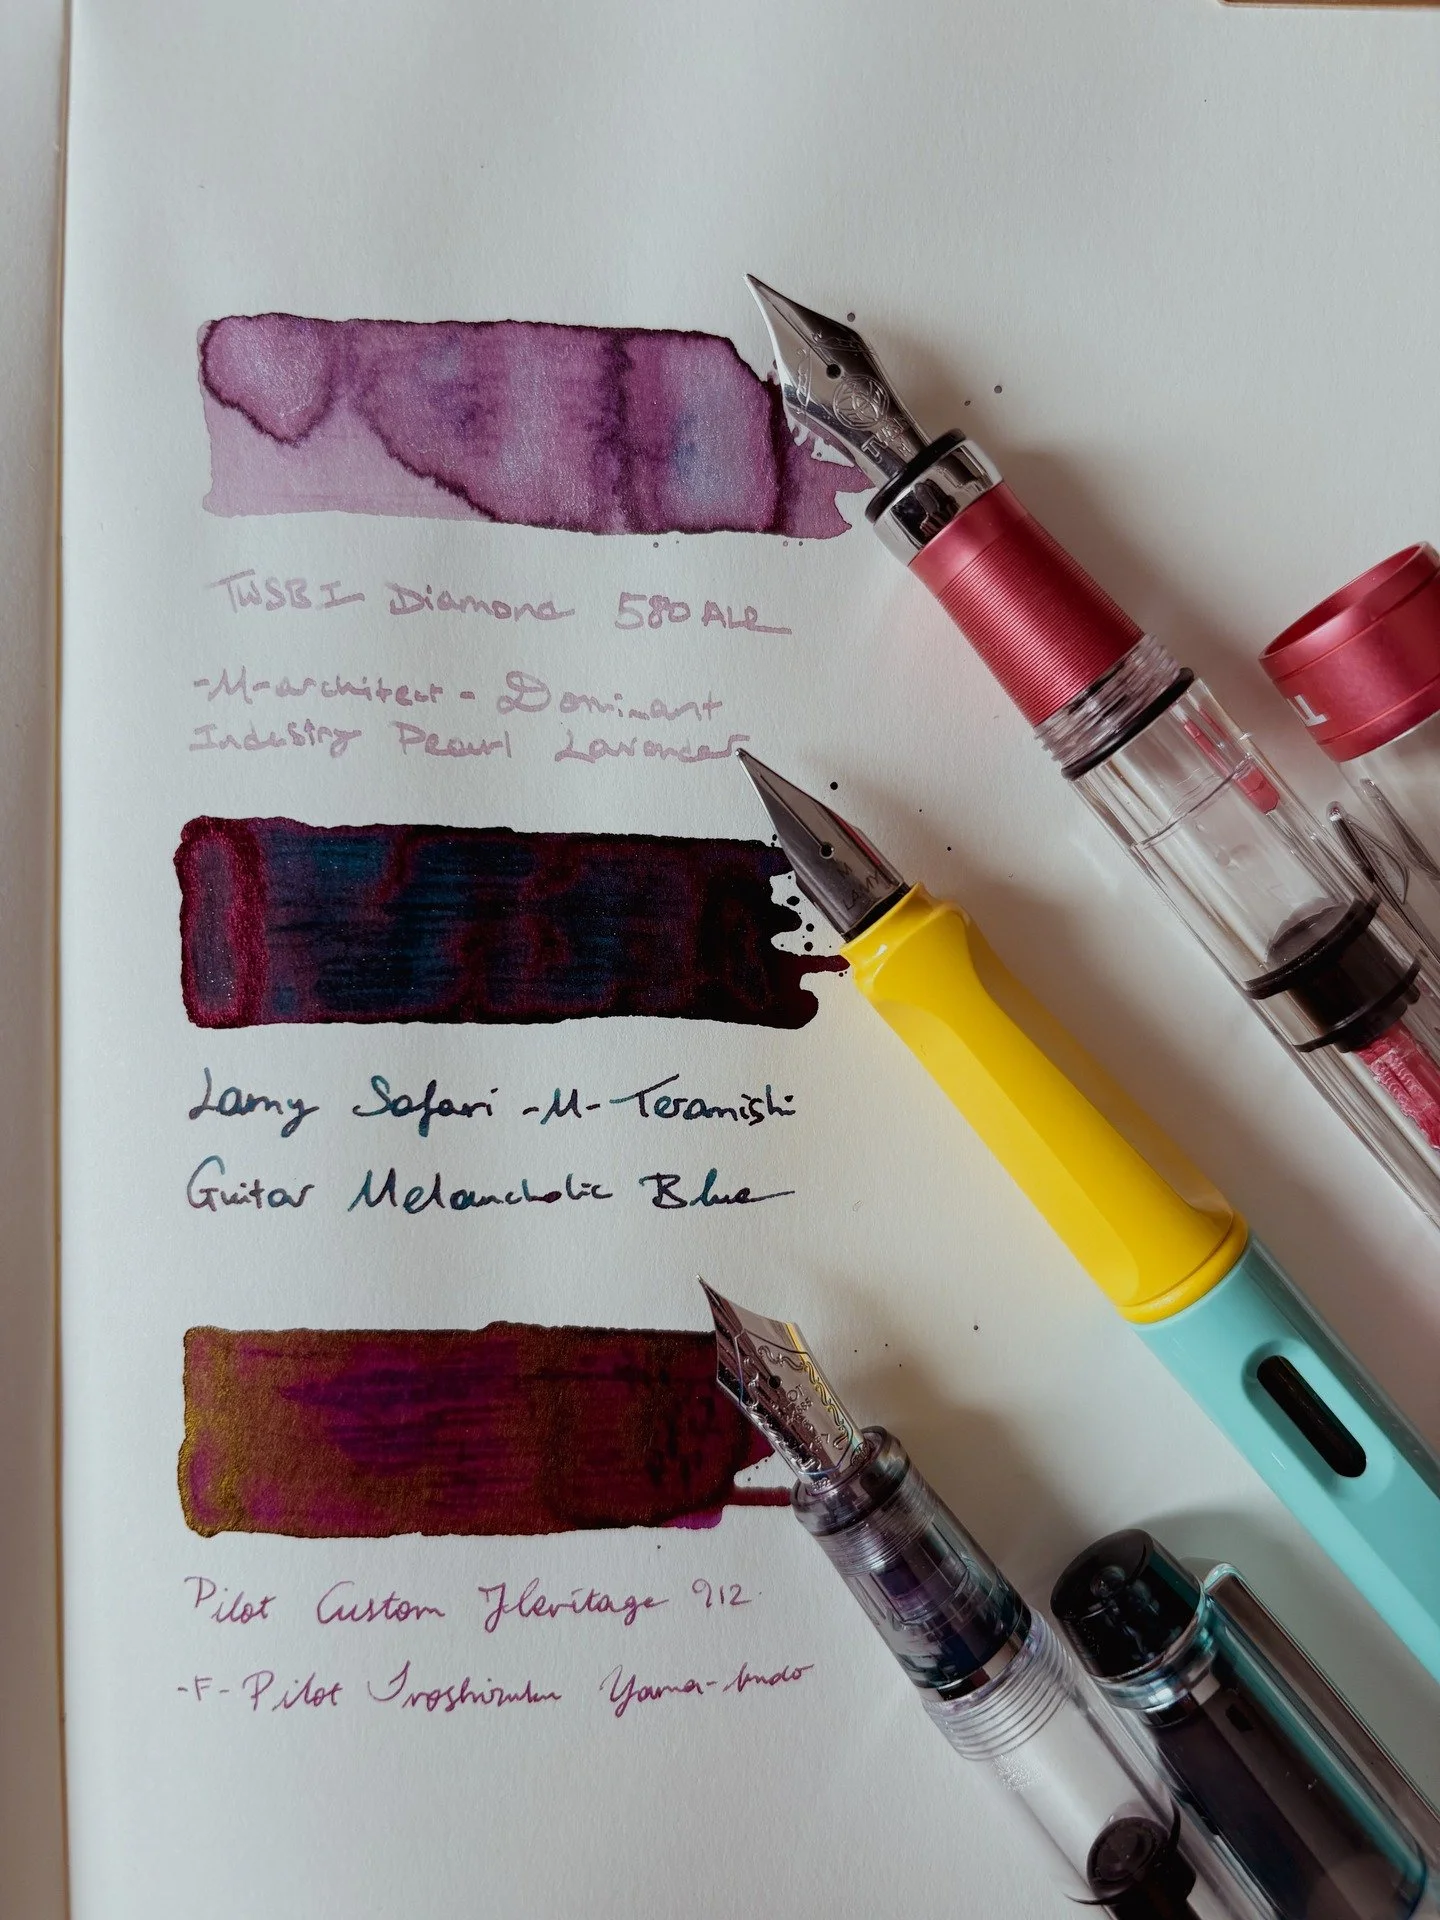 TWSBI Diamond 580 ALR
-M-architect - Dominant
Industry Pearl Lavender
Lamy Safari -M- Teranishi
Guitar Melancholic Blue
Pilot Custom Heritage 912
-F- Pilot Iroshizuku Yama-budo
TWSBI
M
LAMY
T